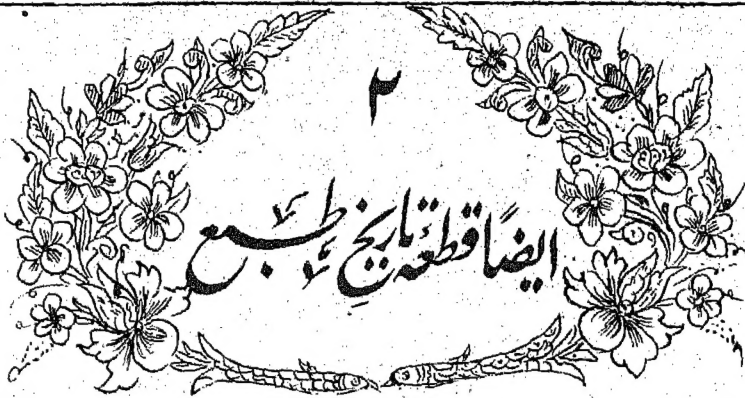 ۲
ایضاً قطعۂ تاریخِ طبع